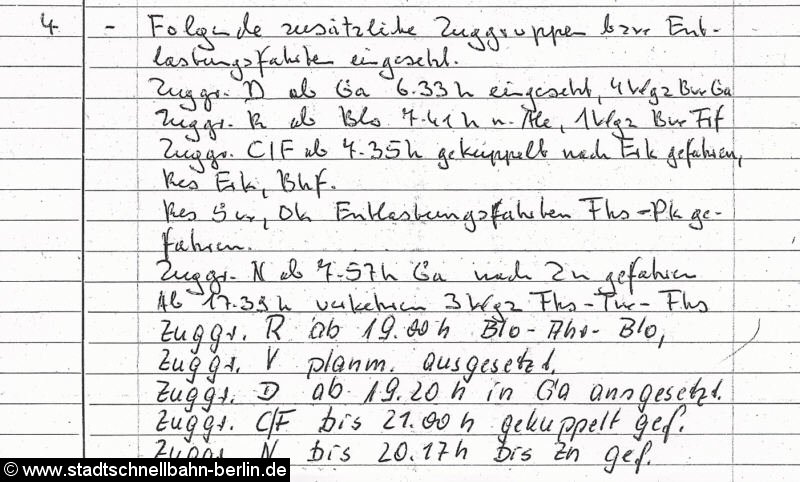 4. - Folgende zusätzliche Zuggruppen bzw. Ent-
lastungsfahrten eingesetzt.
Zuggr. D ab Ga 6.33 h eingesetzt, 4 Wgz Bw Ga
Zuggr. R ab Blo 7.41 h n. 1 Wgz Bw Frf
Zuggr. C/F ab 7.35 h gekuppelt nach Erk gefahren,
Res Erk, Bhf.
Res Ok Entlastungsfahrten Fhs - Pk ge-
fahren.
Zuggr. N ab 7.57 h Ga nach Zn gefahren
Ab 17.39 h verkehren 3 Wgz Fhs - Tw - Fhs
Zuggr. R ab 19.00 h Blo - Ahr - Blo,
Zuggr. V planm. ausgesetzt.
Zuggr. D ab 19.20 h in Ga ausgesetzt.
Zuggr. C/F bis 21.00 h gekuppelt gef.
Zuggr. N bis 20.17 h bis Zn gef.
© www.stadtschnellbahn-berlin.de